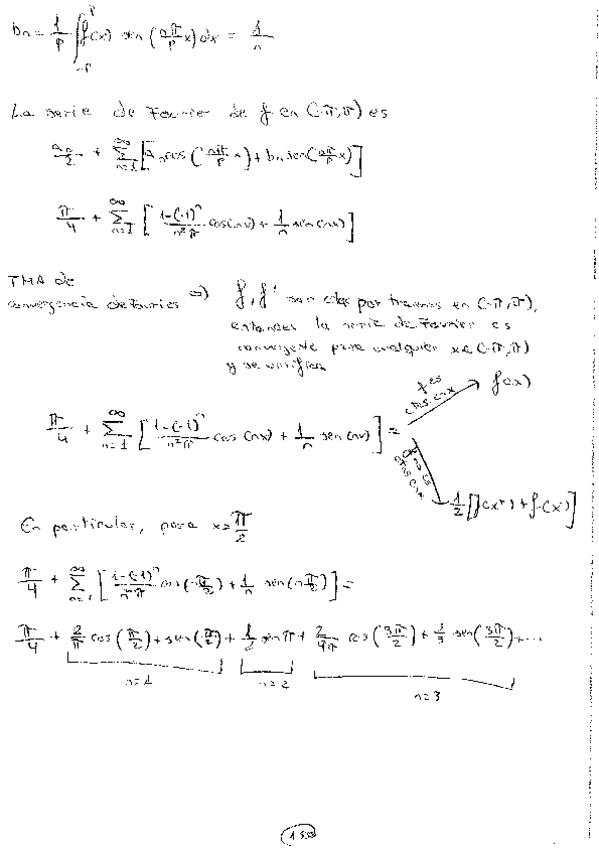 bn = 1/p ∫_{-p}^{p} f(x) sen (nπ/p x) dx = 1/n
La serie de Fourier de f en (-π,π) es
a₀/2 + Σ_{n=1}^{∞} [an cos (nπ/p x) + bn sen (nπ/p x)]
π/4 + Σ_{n=1}^{∞} [ (1-(-1)^n)/(n²π) cos(nx) + 1/n sen(nx) ]
TMA de
convergencia de Fourier => f, f' son ctas por tramos en (-π,π),
entonces la serie de Fourier es
convergente para cualquier x∈(-π,π)
y se verifica
f es ctas. en x f(x)
π/4 + Σ_{n=1}^{∞} [ (1-(-1)^n)/(n²π) cos (nx) + 1/n sen (nx) ] =
no es ctas en x 1/2 [f(x⁺) + f(x⁻)]
En particular, para x = π/2
π/4 + Σ_{n=1}^{∞} [ (1-(-1)^n)/(n²π) cos (nπ/2) + 1/n sen (nπ/2) ] =
π/4 + 2/π cos (π/2) + sen (π/2) + 1/2 sen π + 2/9π cos (3π/2) + 1/3 sen (3π/2) + ...
n=1 n=2 n=3